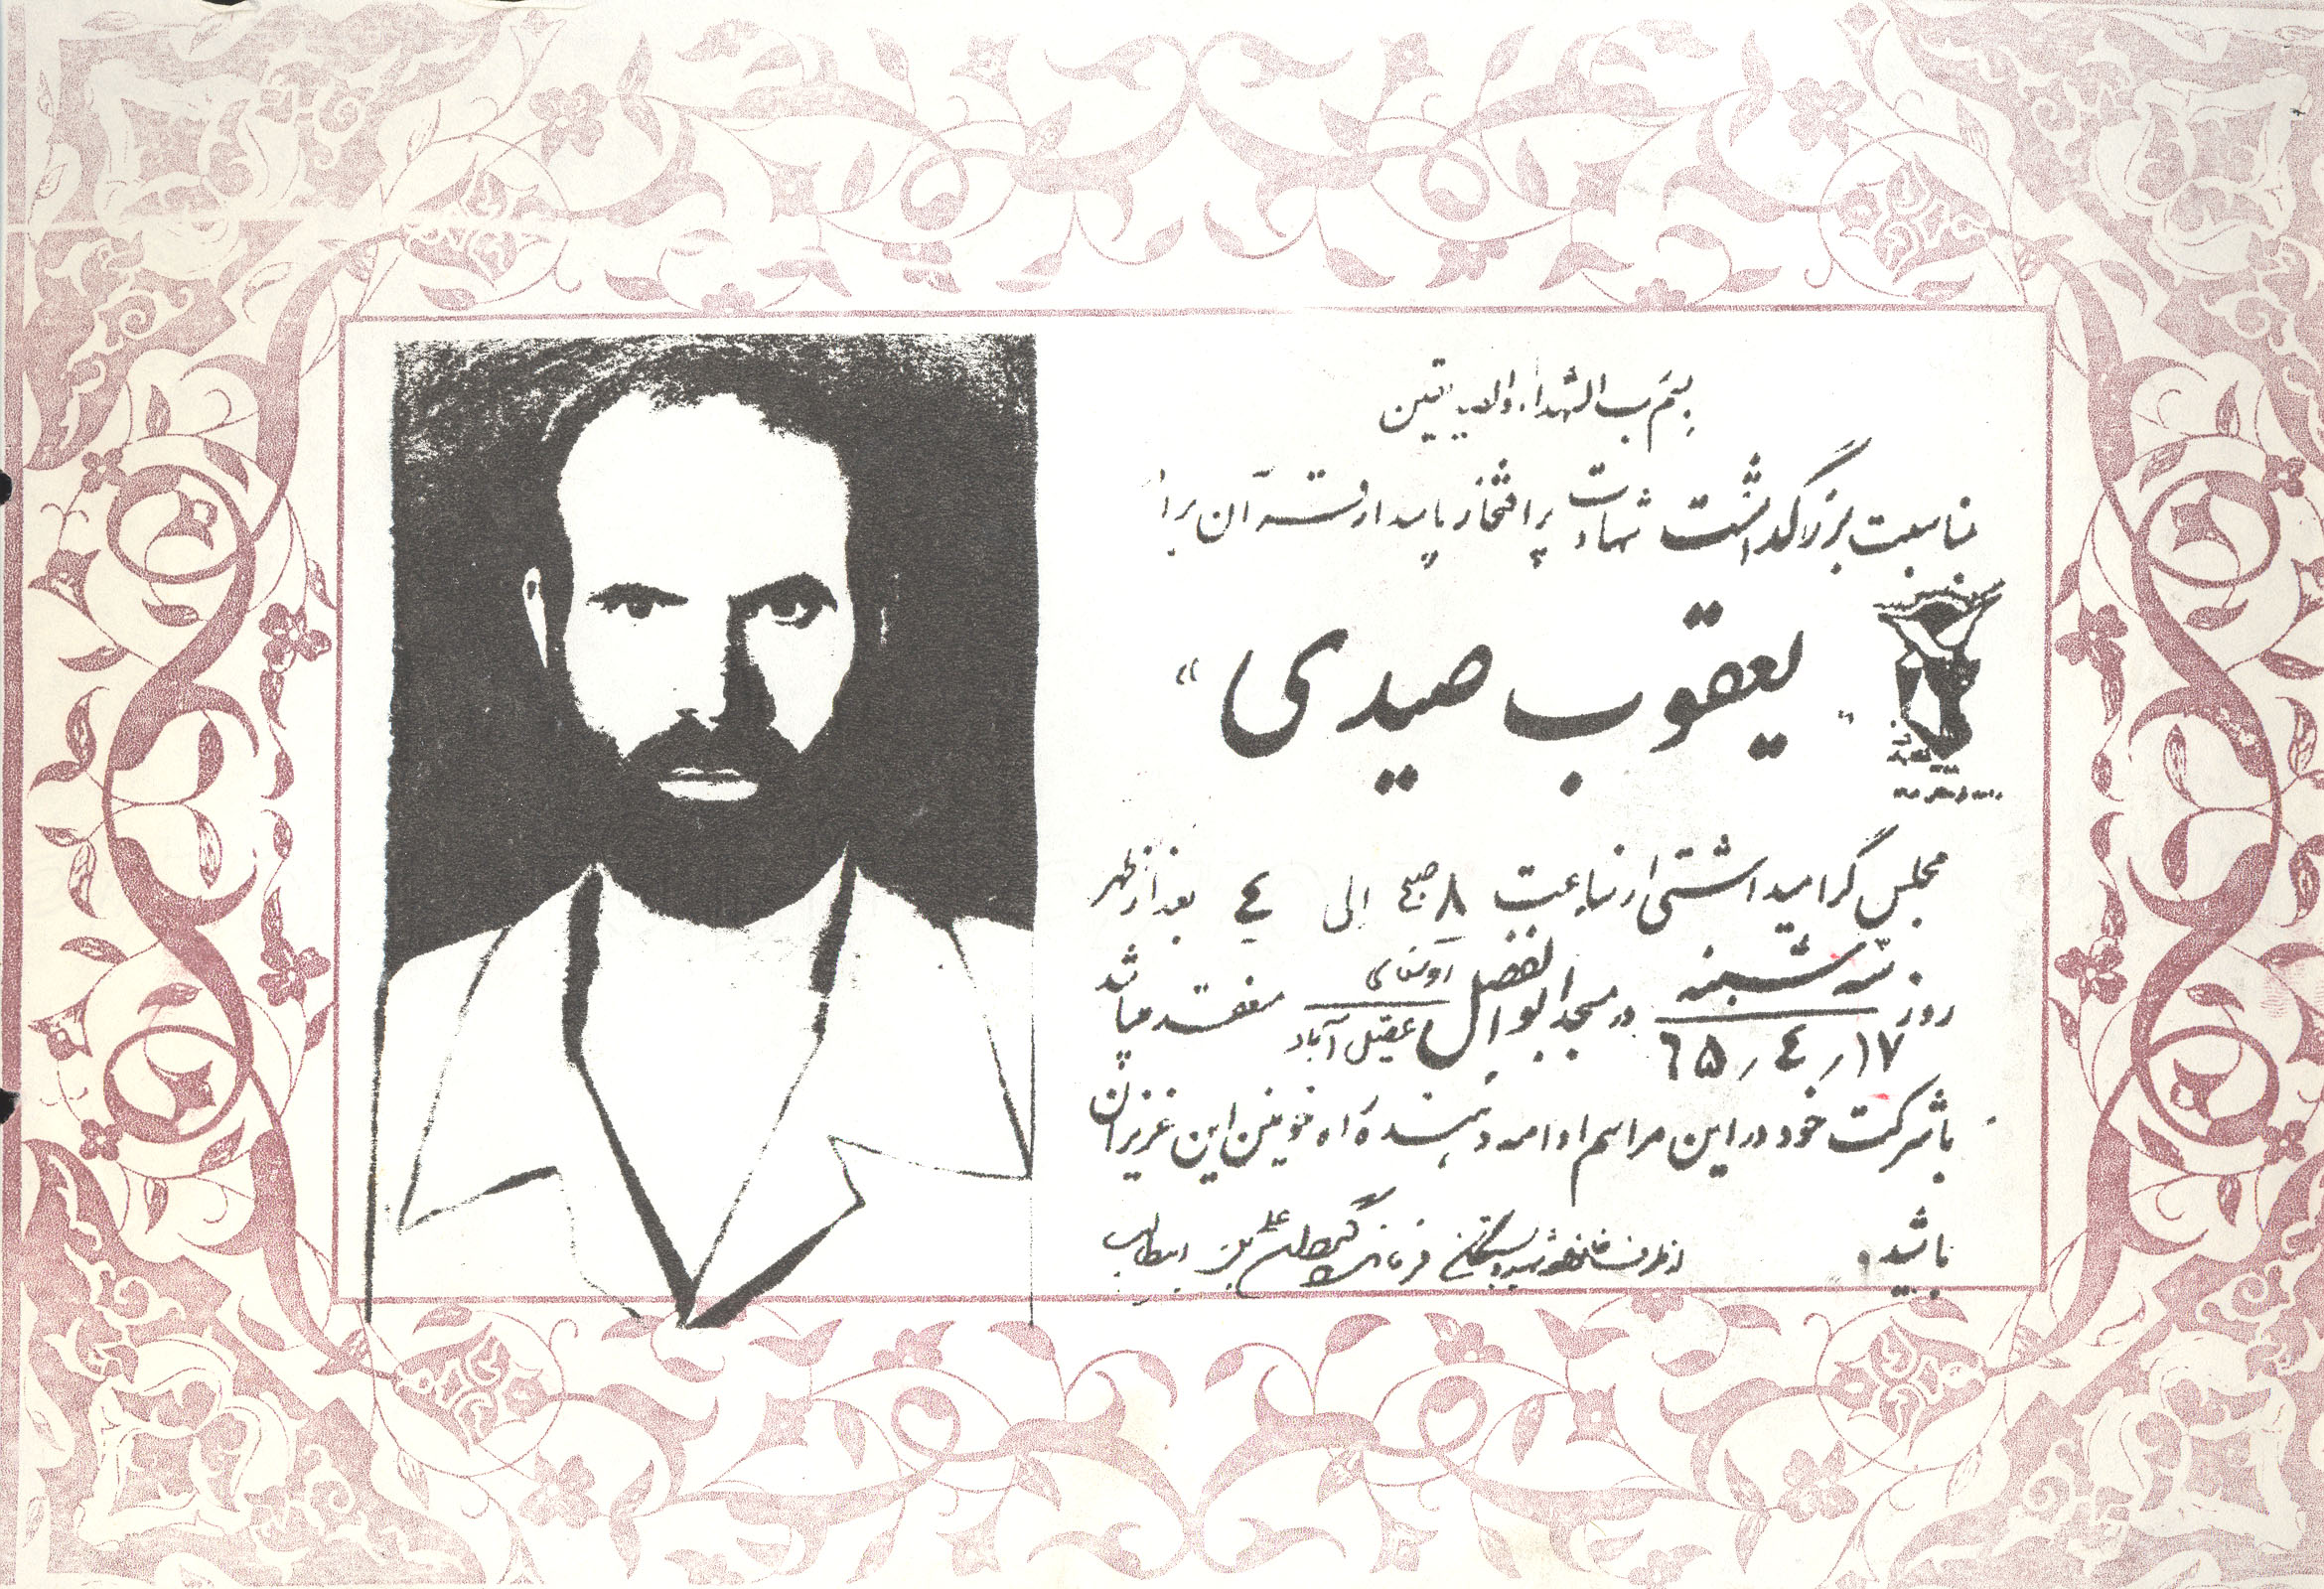 بسم رب الشهداء والصدیقین
بمناسبت بزرگداشت شهادت پرافتخار پاسدار قرآن برادر
"یعقوب صیدی"
مجلس گرامیداشتی از ساعت ۸ صبح الی ٤ بعد از ظهر
روز سه شنبه ۶۵/٤/۱۷ در مسجد ابوالفضل عقیل آباد منعقد میباشد
باشرکت خود در این مراسم ادامه دهنده راه خونین این عزیزان
باشید.
از طرف خانواده شهید و بستگان فرماندهی گردان علی بن ابیطالب